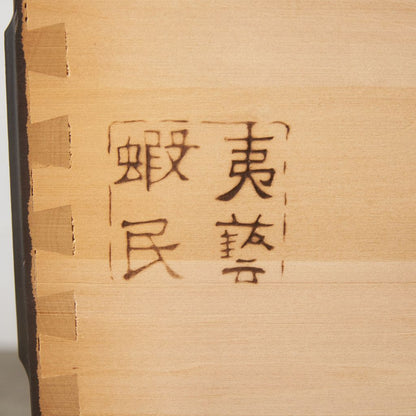 蝦夷
民藝